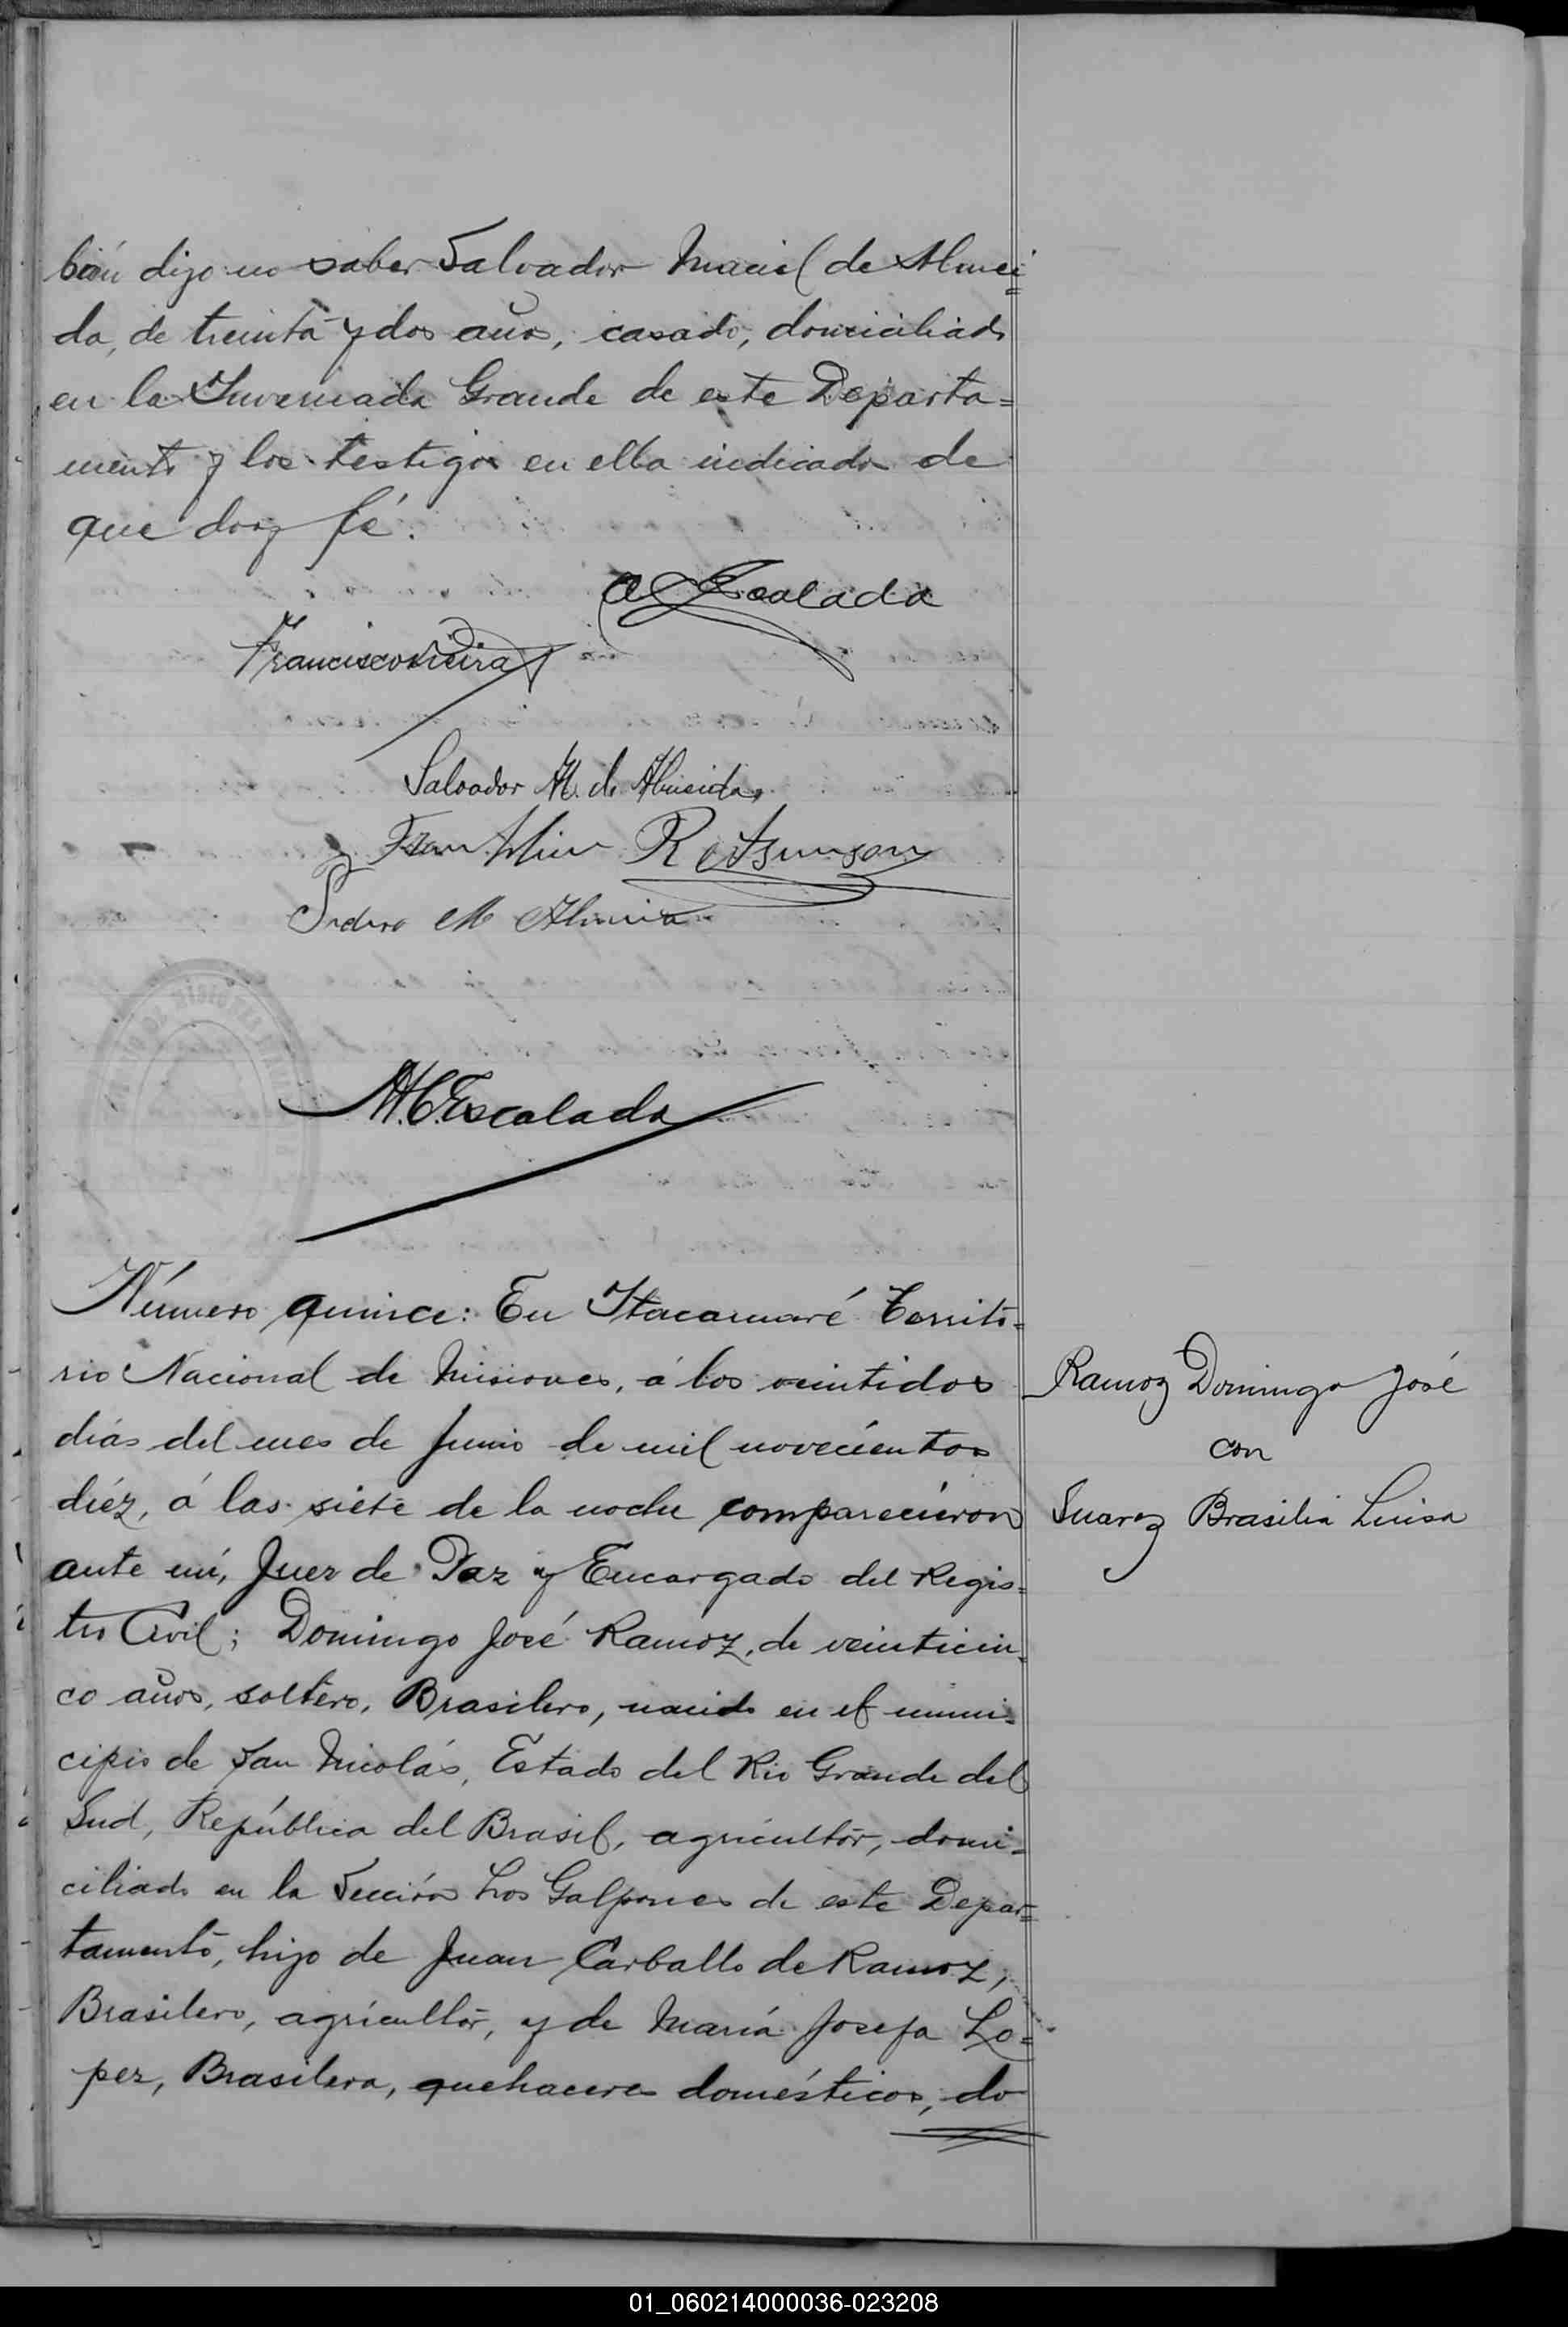 bién dijo no saber Salvador Maciel de Almei=
da, de treinta y dos años, casado, domiciliado
en la Invernada Grande de este Departa=
mento y los testigos en ella indicados de
que doy fé.
Escalada
Francisco Vieira
Salvador M. de Almeida
R Asunson
Pedro M
A.C. Escalada
Número quince: En Itacaruaré Territo=
rio Nacional de Misiones, á los veintidos
Ramoz Domingo José
días del mes de Junio de mil novecientos
con
diéz, á las siete de la noche comparecieron
Suarez Brasilia Luisa
ante mí, Juez de Paz y Encargado del Regis=
tro Civil; Domingo José Ramoz, de veinticin=
co años, soltero, Brasilero, nacido en el muni=
cipio de San Nicolás, Estado del Rio Grande del
Sud, República del Brasil, agricultor, domi=
ciliado en la Sección Los Galpones de este Depar=
tamento, hijo de Juan Carballo de Ramoz,
Brasilero, agricultor, y de María Josefa Lo=
pez, Brasilera, quehaceres domésticos, do
01_060214000036-023208